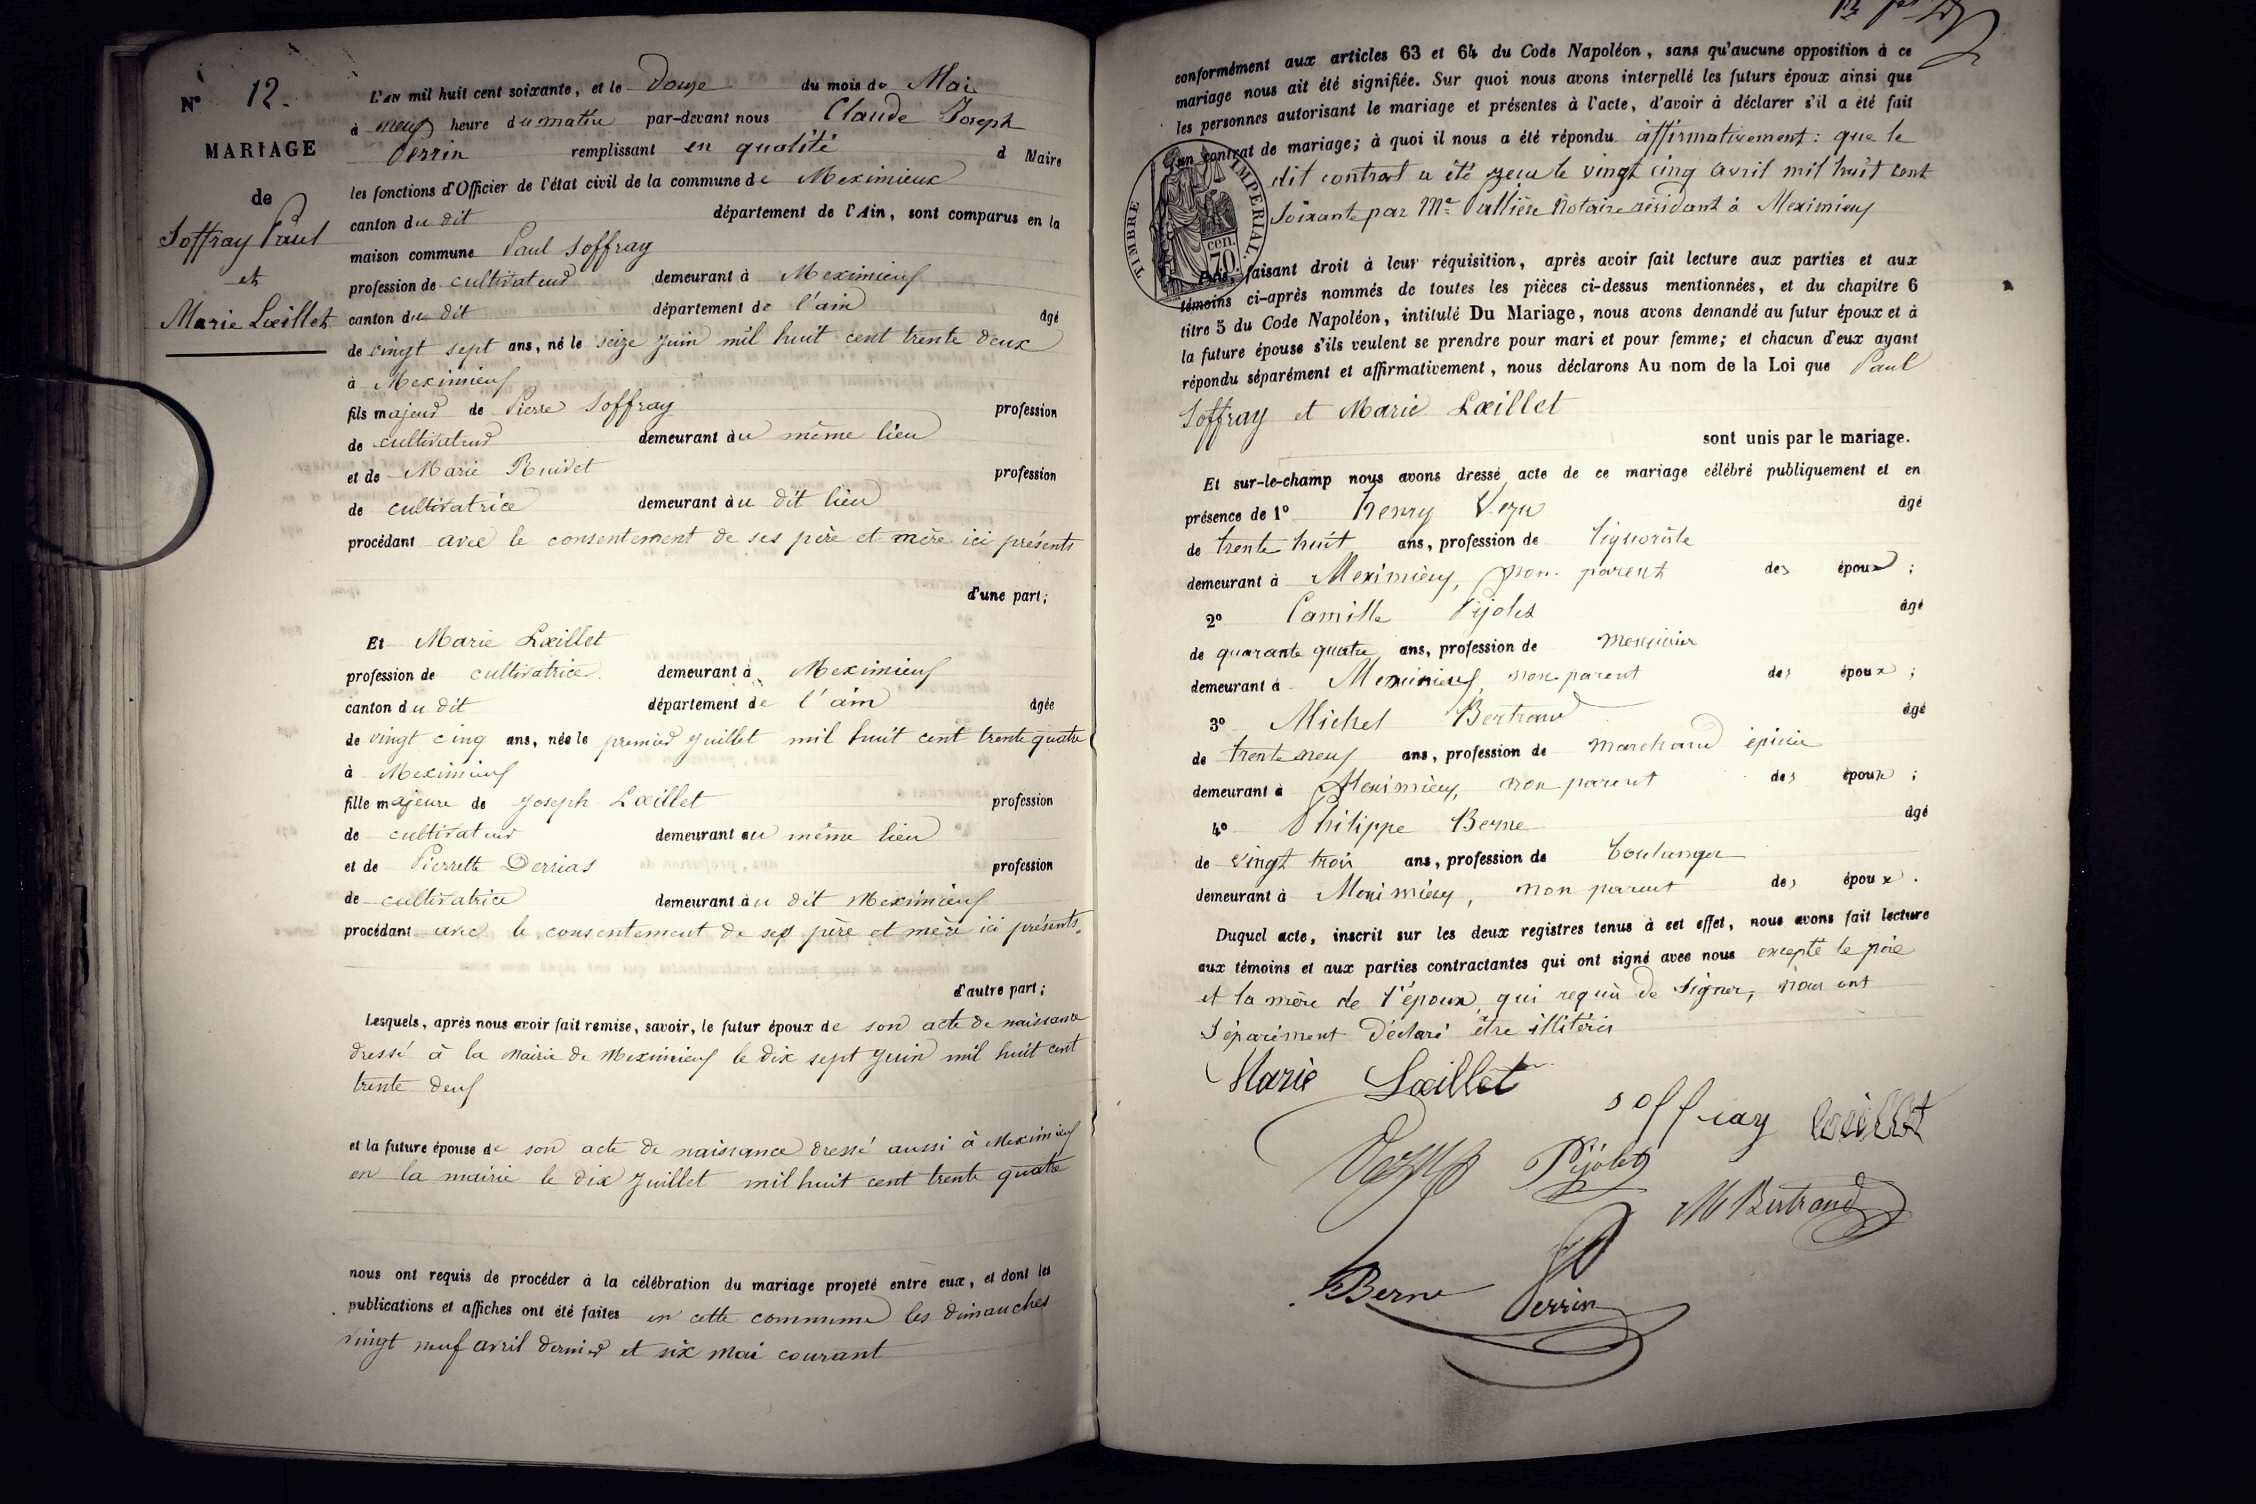 N° 12.
MARIAGE
de
Soffray Paul
et
Marie Lœillet
L'AN mil huit cent soixante, et le Douze du mois de Mai
à neuf heure du matin par-devant nous Claude Joseph
Perrin remplissant en qualité d Maire
les fonctions d'Officier de l'état civil de la commune de Meximieux
canton du dit département de l'Ain, sont comparus en la
maison commune Paul Soffray
profession de cultivateur demeurant à Meximieux
canton du dit département de l'ain âgé
de vingt sept ans, né le seize juin mil huit cent trente deux
à Meximieux
fils majeur de Pierre Soffray profession
de cultivateur demeurant au même lieu
et de Marie Ruivet profession
de cultivatrice demeurant au dit lieu
procédant avec le consentement de ses père et mère ici présents
d'une part;
Et Marie Lœillet
profession de cultivatrice demeurant à Meximieux
canton du dit département de l'ain âgée
de vingt cinq ans, née le premier juillet mil huit cent trente quatre
à Meximieux
fille majeure de Joseph Lœillet profession
de cultivateur demeurant au même lieu
et de Pierrette Derrias profession
de cultivatrice demeurant au dit Meximieux
procédant avec le consentement de ses père et mère ici présents.
d'autre part;
Lesquels, après nous avoir fait remise, savoir, le futur époux de son acte de naissance
dressé à la mairie de Meximieux le dix sept juin mil huit cent
trente deux
et la future épouse de son acte de naissance dressé aussi à Meximieux
en la mairie le dix juillet mil huit cent trente quatre
nous ont requis de procéder à la célébration du mariage projeté entre eux, et dont les
publications et affiches ont été faites en cette commune les dimanches
vingt neuf avril dernier et six mai courant
conformément aux articles 63 et 64 du Code Napoléon, sans qu'aucune opposition à ce
mariage nous ait été signifiée. Sur quoi nous avons interpellé les futurs époux ainsi que
les personnes autorisant le mariage et présentes à l'acte, d'avoir à déclarer s'il a été fait
un contrat de mariage; à quoi il nous a été répondu affirmativement: que le
dit contrat a été reçu le vingt cinq avril mil huit cent
soixante par Me Pallière Notaire résidant à Meximieux
TIMBRE IMPERIAL
70 cen.
Puis faisant droit à leur réquisition, après avoir fait lecture aux parties et aux
témoins ci-après nommés de toutes les pièces ci-dessus mentionnées, et du chapitre 6
titre 5 du Code Napoléon, intitulé Du Mariage, nous avons demandé au futur époux et à
la future épouse s'ils veulent se prendre pour mari et pour femme; et chacun d'eux ayant
répondu séparément et affirmativement, nous déclarons Au nom de la Loi que Paul
Soffray et Marie Lœillet
sont unis par le mariage.
Et sur-le-champ nous avons dressé acte de ce mariage célébré publiquement et en
présence de 1° henry Vezu âgé
de trente huit ans, profession de liquoriste
demeurant à Meximieux, non parent des époux;
2° Camille Pijolet âgé
de quarante quatre ans, profession de menuisier
demeurant à Meximieux, non parent des époux;
3° Michel Bertrand âgé
de trente neuf ans, profession de marchand épicier
demeurant à Meximieux, non parent des époux;
4° Philippe Berne âgé
de vingt trois ans, profession de boulanger
demeurant à Meximieux, non parent des époux.
Duquel acte, inscrit sur les deux registres tenus à cet effet, nous avons fait lecture
aux témoins et aux parties contractantes qui ont signé avec nous excepté le père
et la mère de l'époux qui requis de signer, nous ont
séparément déclaré être illitérés
Marie Lœillet
soffray loeillet
Vezu Pijolet
M Bertrand
Berne Perrin